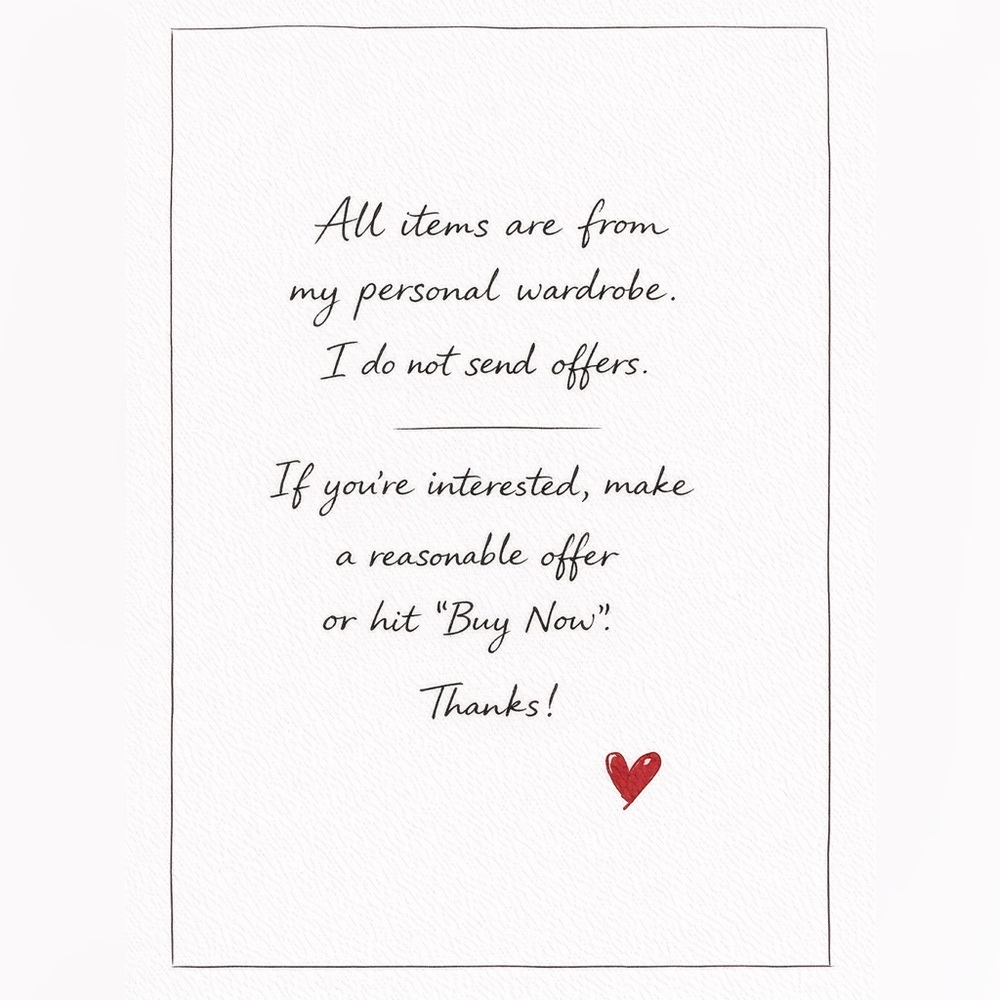 All items are from
my personal wardrobe.
I do not send offers.
If you're interested, make
a reasonable offer
or hit “Buy Now”.
Thanks!